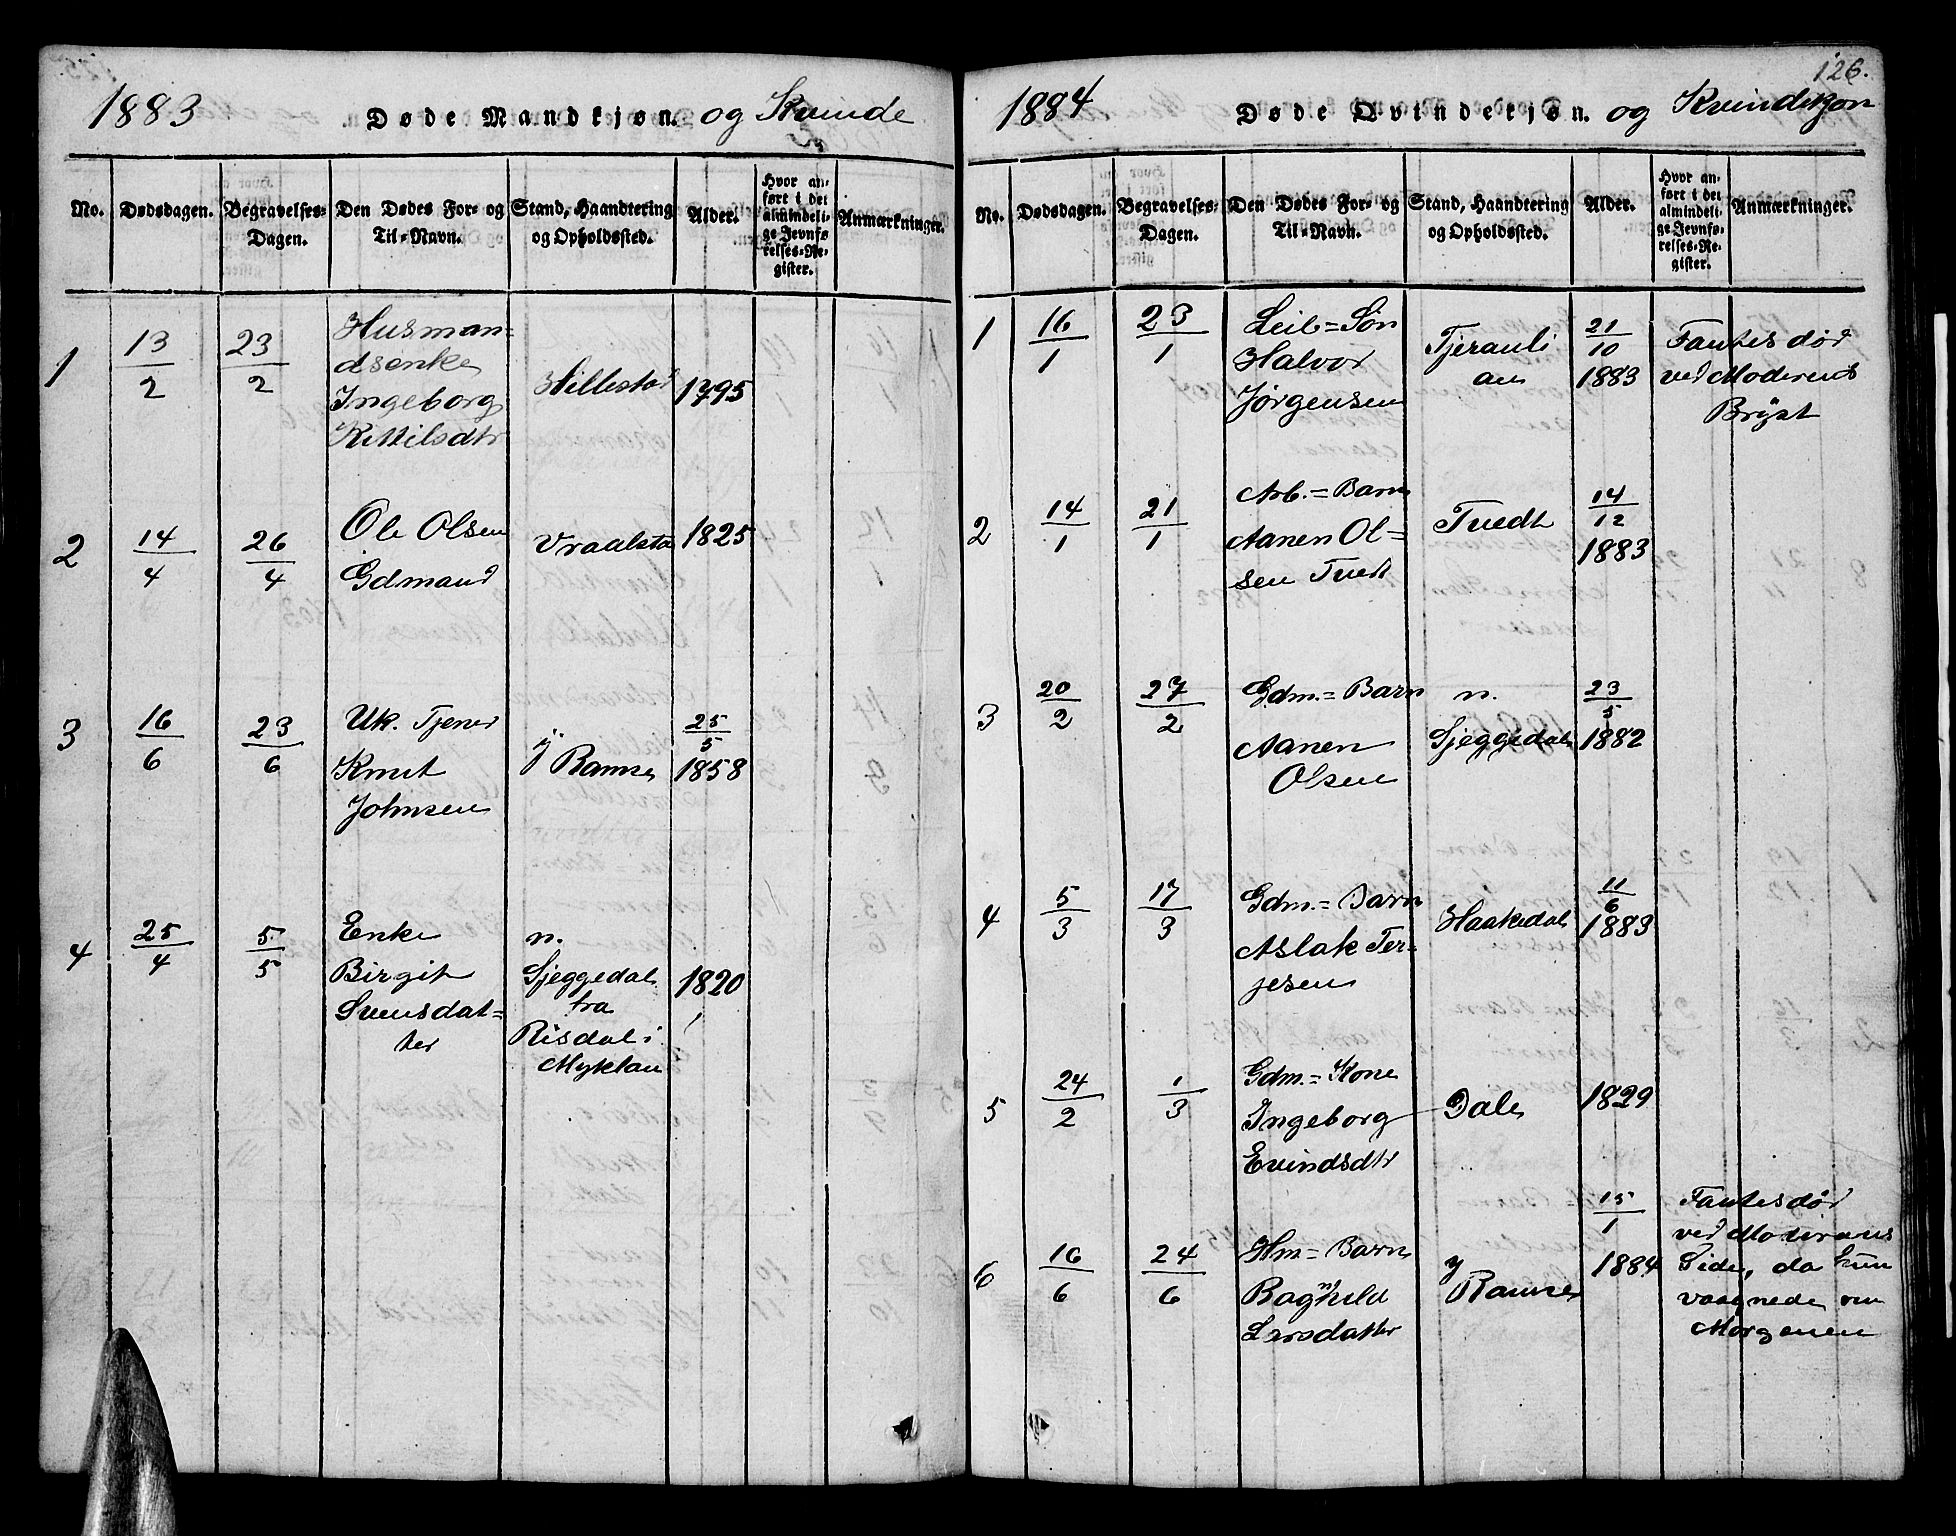 1883 Døde Mandkjøn. og Kvinde
No. Dødsdagen. Begravelses-Dagen. Den Dødes For- og Til-Navn. Stand, Haandtering og Opholdssted. Alder. Hvor anført i det almindelige Jevnførelses-Register. Anmærkninger.
1 13/2 23/2 Husman=
dsenke
Ingeborg Hillestad 1795
Kittilsdtr
2 14/4 26/4 Ole Olsen Vraalsta 1825
Gdmand
3 16/6 23/6 Uk. Tjener 25/5
Knut y Ramse 1858
Johnsen
4 25/4 5/5 Enke n.
Birgit Sjeggedal 1820
Svensdat= fra
ter Risdal i
Myklan
126.
1884 Døde Qvindekjøn. og Kvindekjøn
No. Dødsdagen. Begravelses-Dagen. Den Dødes For- og Til-Navn. Stand, Haandtering og Opholdssted. Alder. Hvor anført i det almindelige Jevnførelses-Register. Anmærkninger.
1 16/1 23/1 Leil=Søn Tjerauli 21/10 Fantes død
Halvor aas 1883 ved Moderens
Jørgensen Bryst
2 14/1 21/1 Arb.=Barn Tvedt 14/12
Aanen Ol= 1883
sen Tvedt
3 20/2 27/2 Gdm.=Barn n. 23/5
Aanen Sjeggedal 1882
Olsen
4 5/3 17/3 Gdm.=Barn Haakedal 11/6
Aslak Ter= 1883
jesen
5 24/2 1/3 Gdm.=Kone
Ingeborg Dale 1829
Evindsdtr
6 16/6 24/6 Hm=Barn y 15/1 Fantes død
Ragnhild Ramse 1884 ved Moderens
Larsdatter Side, da hun
vaagnede om
Morgenen